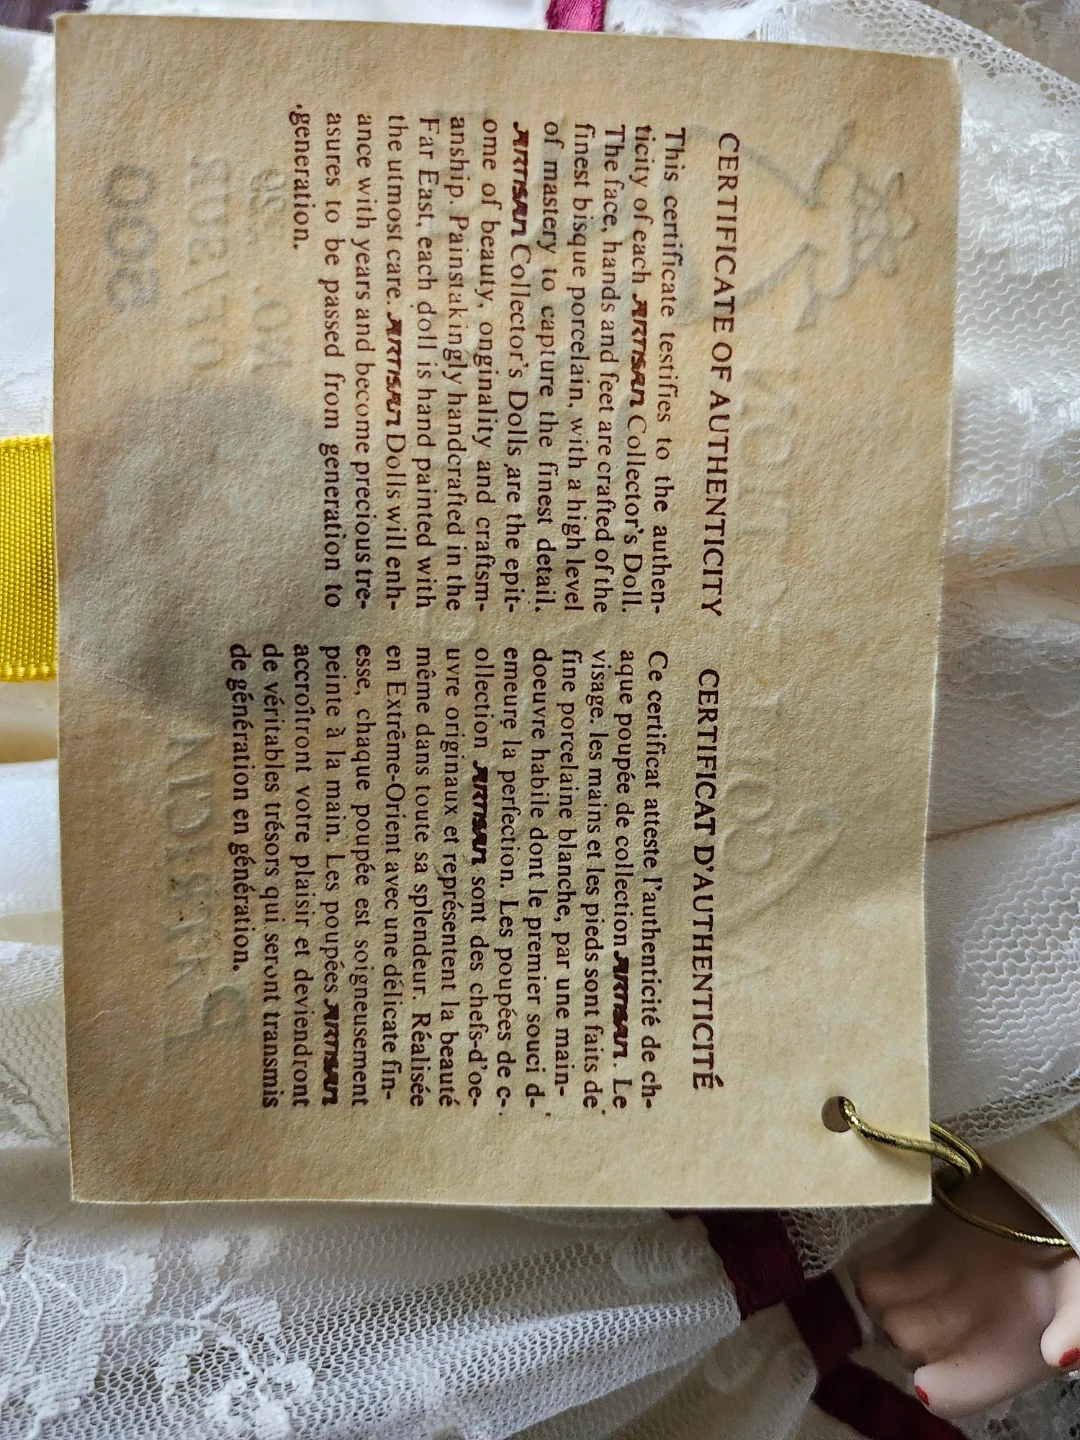 CERTIFICATE OF AUTHENTICITY
This certificate testifies to the authen-
ticity of each ARTISAN Collector's Doll.
The face, hands and feet are crafted of the
finest bisque porcelain, with a high level
of mastery to capture the finest detail.
ARTISAN Collector's Dolls are the epit-
ome of beauty, onginality and craftsm-
anship. Painstakingly handcrafted in the
Far East, each doll is hand painted with
the utmost care. ARTISAN Dolls will enh-
ance with years and become precious tre-
asures to be passed from generation to
generation.
CERTIFICAT D'AUTHENTICITÉ
Ce certificat atteste l'authenticité de ch-
aque poupée de collection ARTISAN. Le
visage, les mains et les pieds sont faits de
fine porcelaine blanche, par une main-
doeuvre habile dont le premier souci d-
emeure la perfection. Les poupées de c-
ollection ARTISAN sont des chefs-d'oe-
uvre originaux et représentent la beauté
même dans toute sa splendeur. Réalisée
en Extrême-Orient avec une délicate fin-
esse, chaque poupée est soigneusement
peinte à la main. Les poupées ARTISAN
accroîtront votre plaisir et deviendront
de véritables trésors qui seront transmis
de génération en génération.